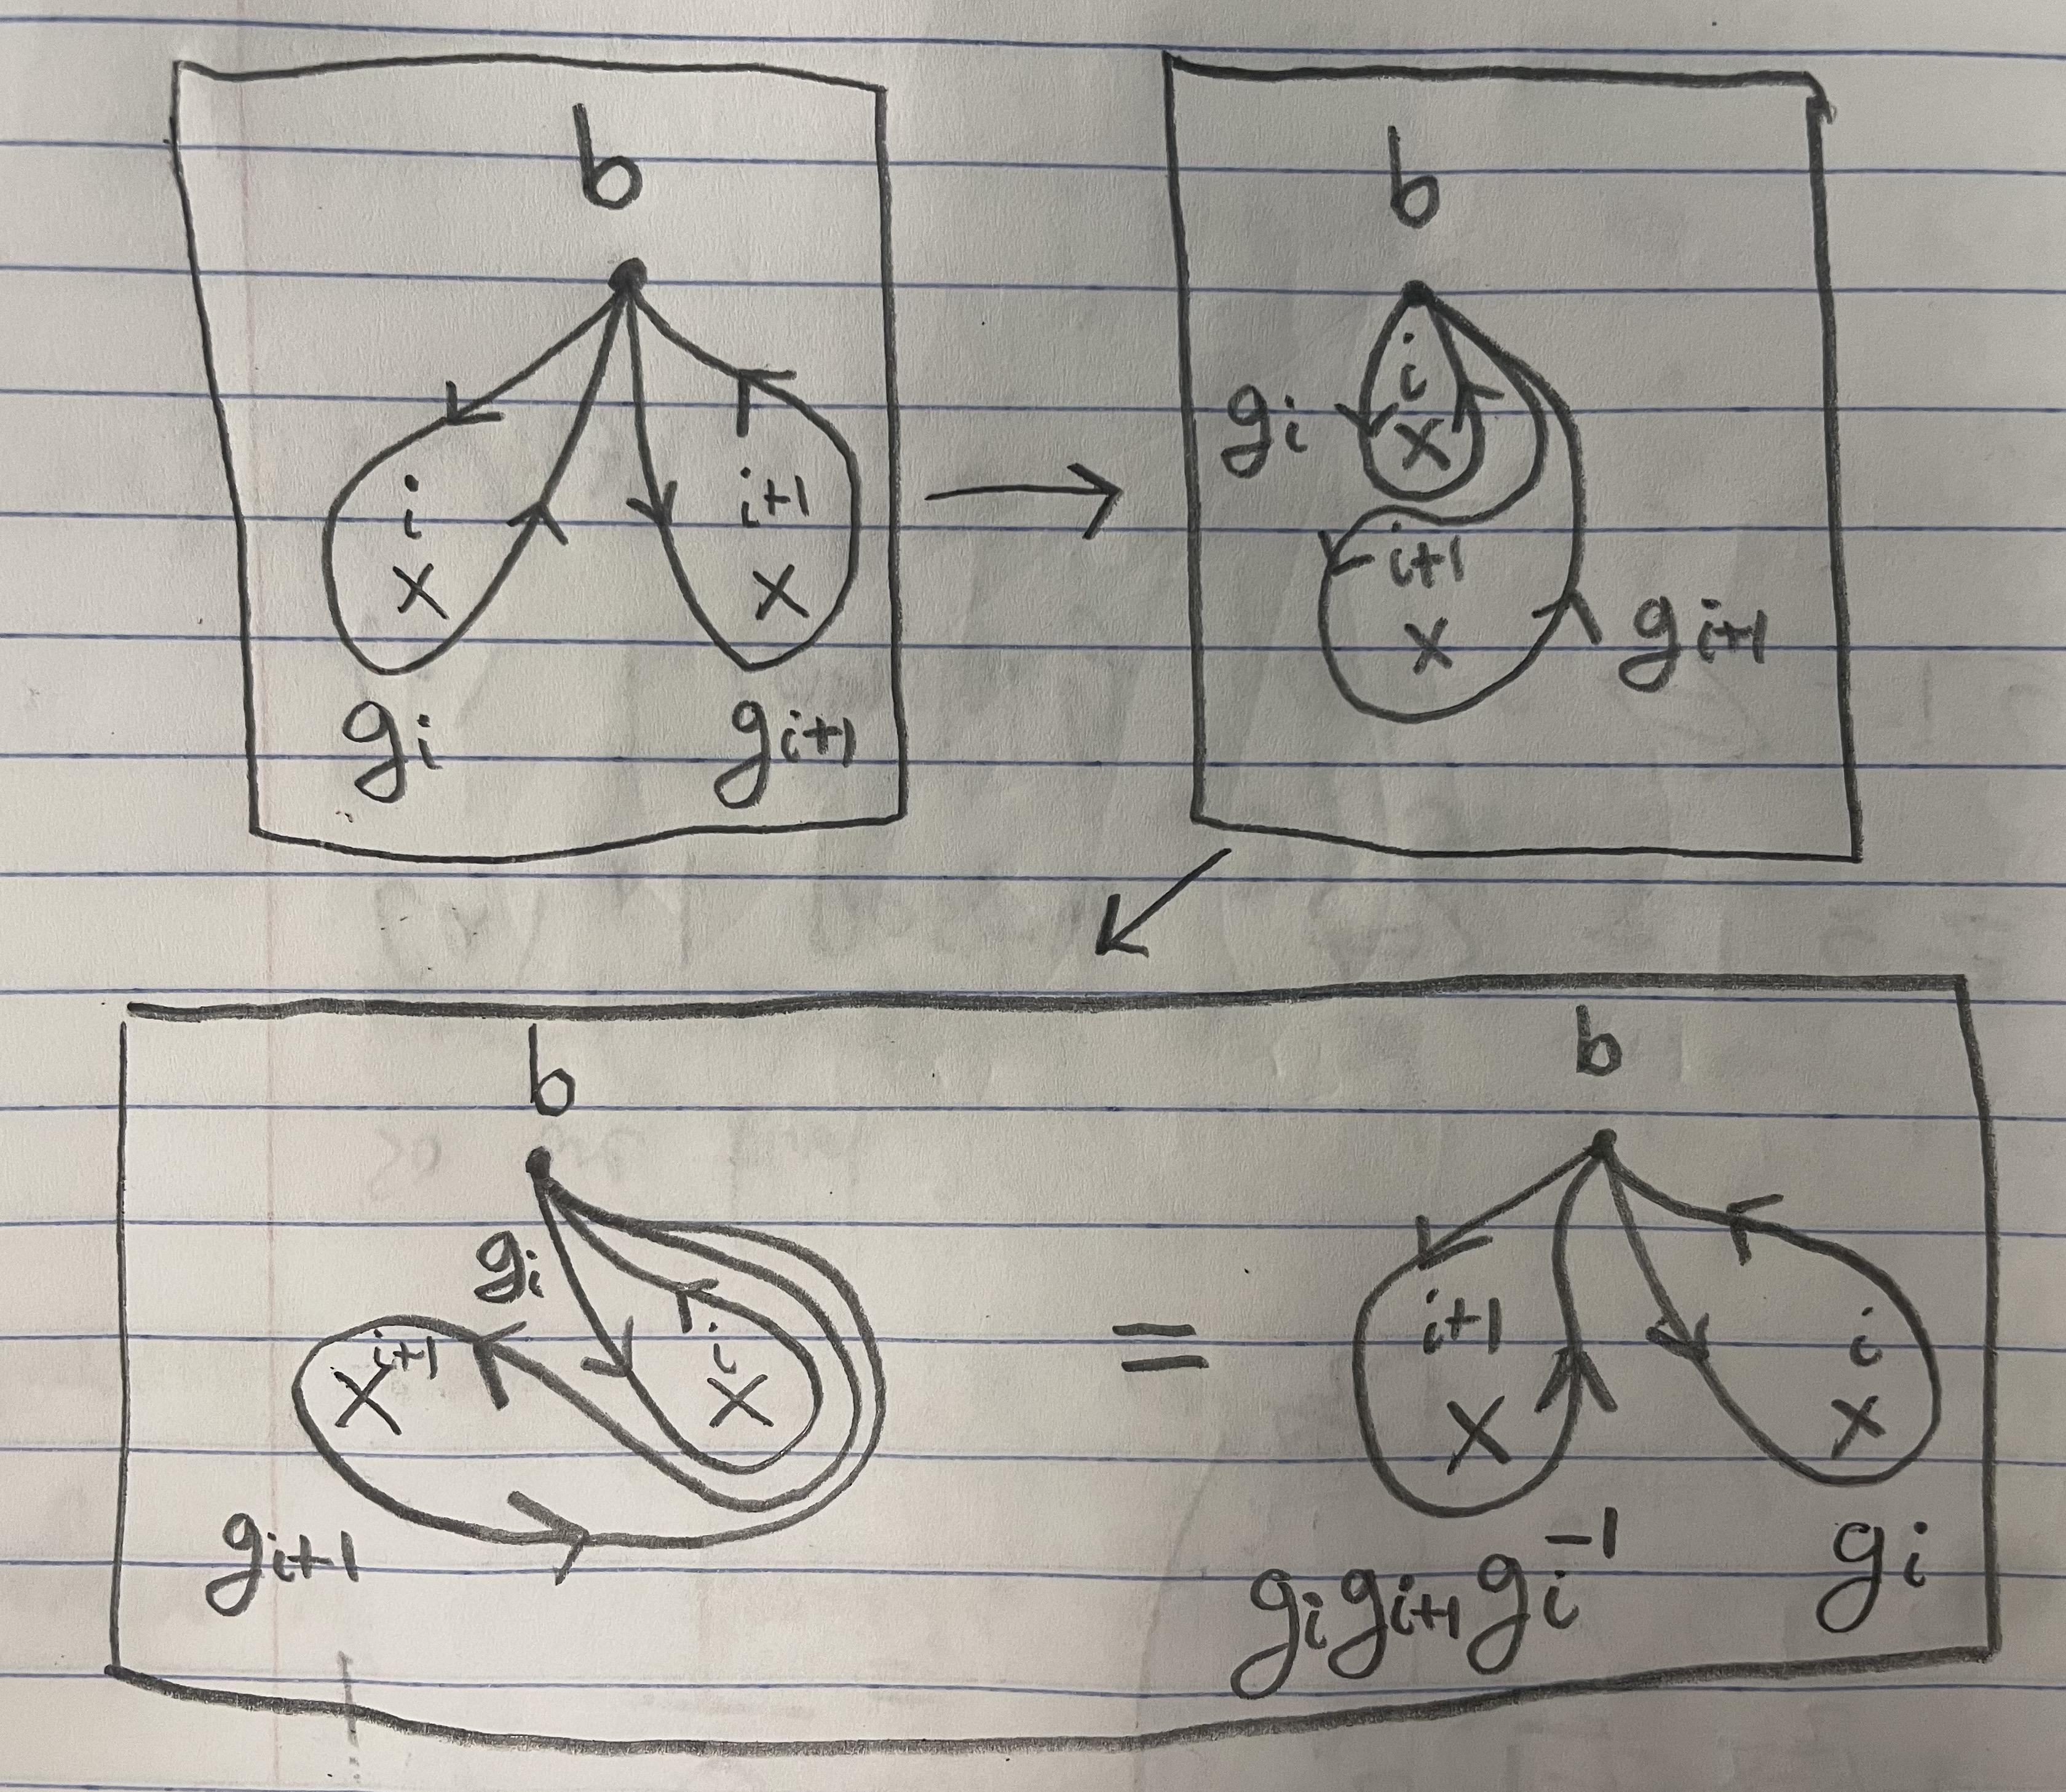 b
i
i+1
x
x
g_i
g_{i+1}
b
i
g_i
x
i+1
x
g_{i+1}
b
g_i
i+1
i
x
x
g_{i+1}
=
b
i+1
i
x
x
g_i g_{i+1} g_i^{-1}
g_i